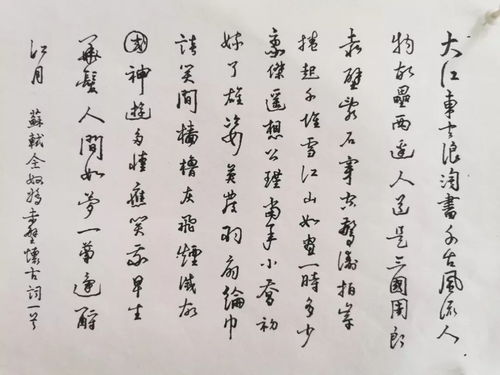 大江東去浪淘盡千古風流人
物故壘西邊人道是三國周郎
赤壁亂石穿空驚濤拍岸
捲起千堆雪江山如畫一時多少
豪傑遙想公瑾當年小喬初
嫁了雄姿英發羽扇綸巾
談笑間檣櫓灰飛煙滅故
國神遊多情應笑我早生
華髮人間如夢一尊還酹
江月 蘇軾念奴嬌赤壁懷古詞一首